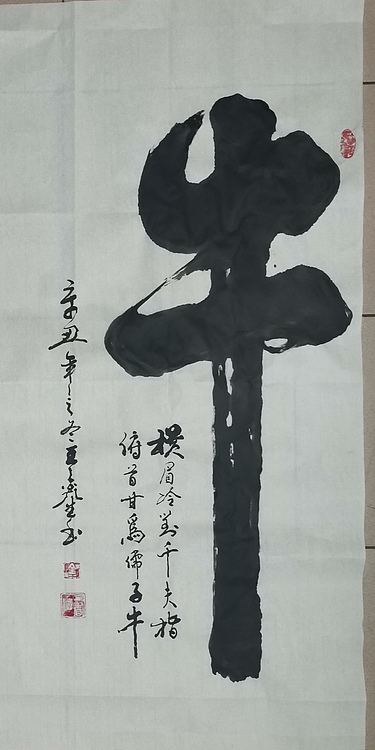 牛
横眉冷對千夫指
俯首甘爲儒子牛
辛丑年之冬王書